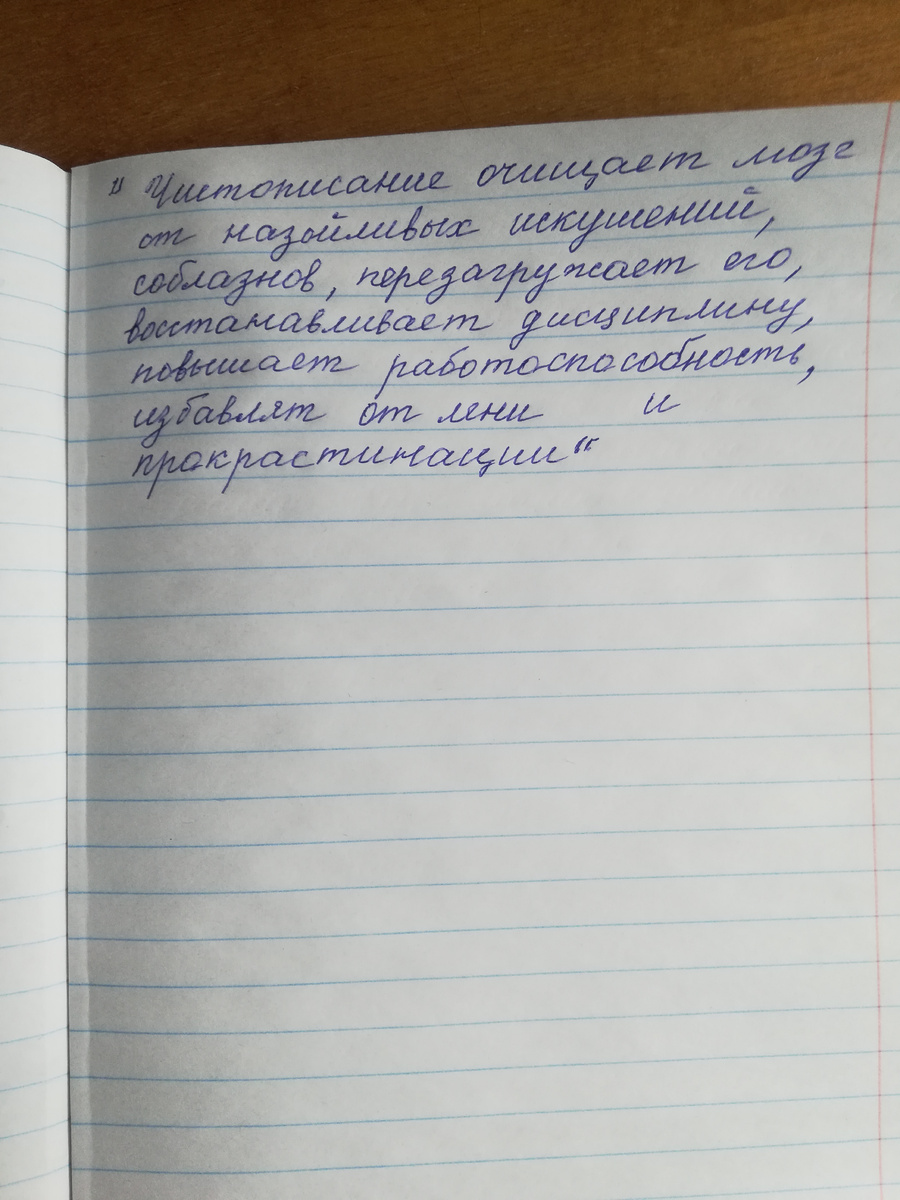 "Чистописание очищает мозг
от назойливых искушений,
соблазнов, перезагружает его,
восстанавливает дисциплину,
повышает работоспособность,
избавлят от лени и
прокрастинации"